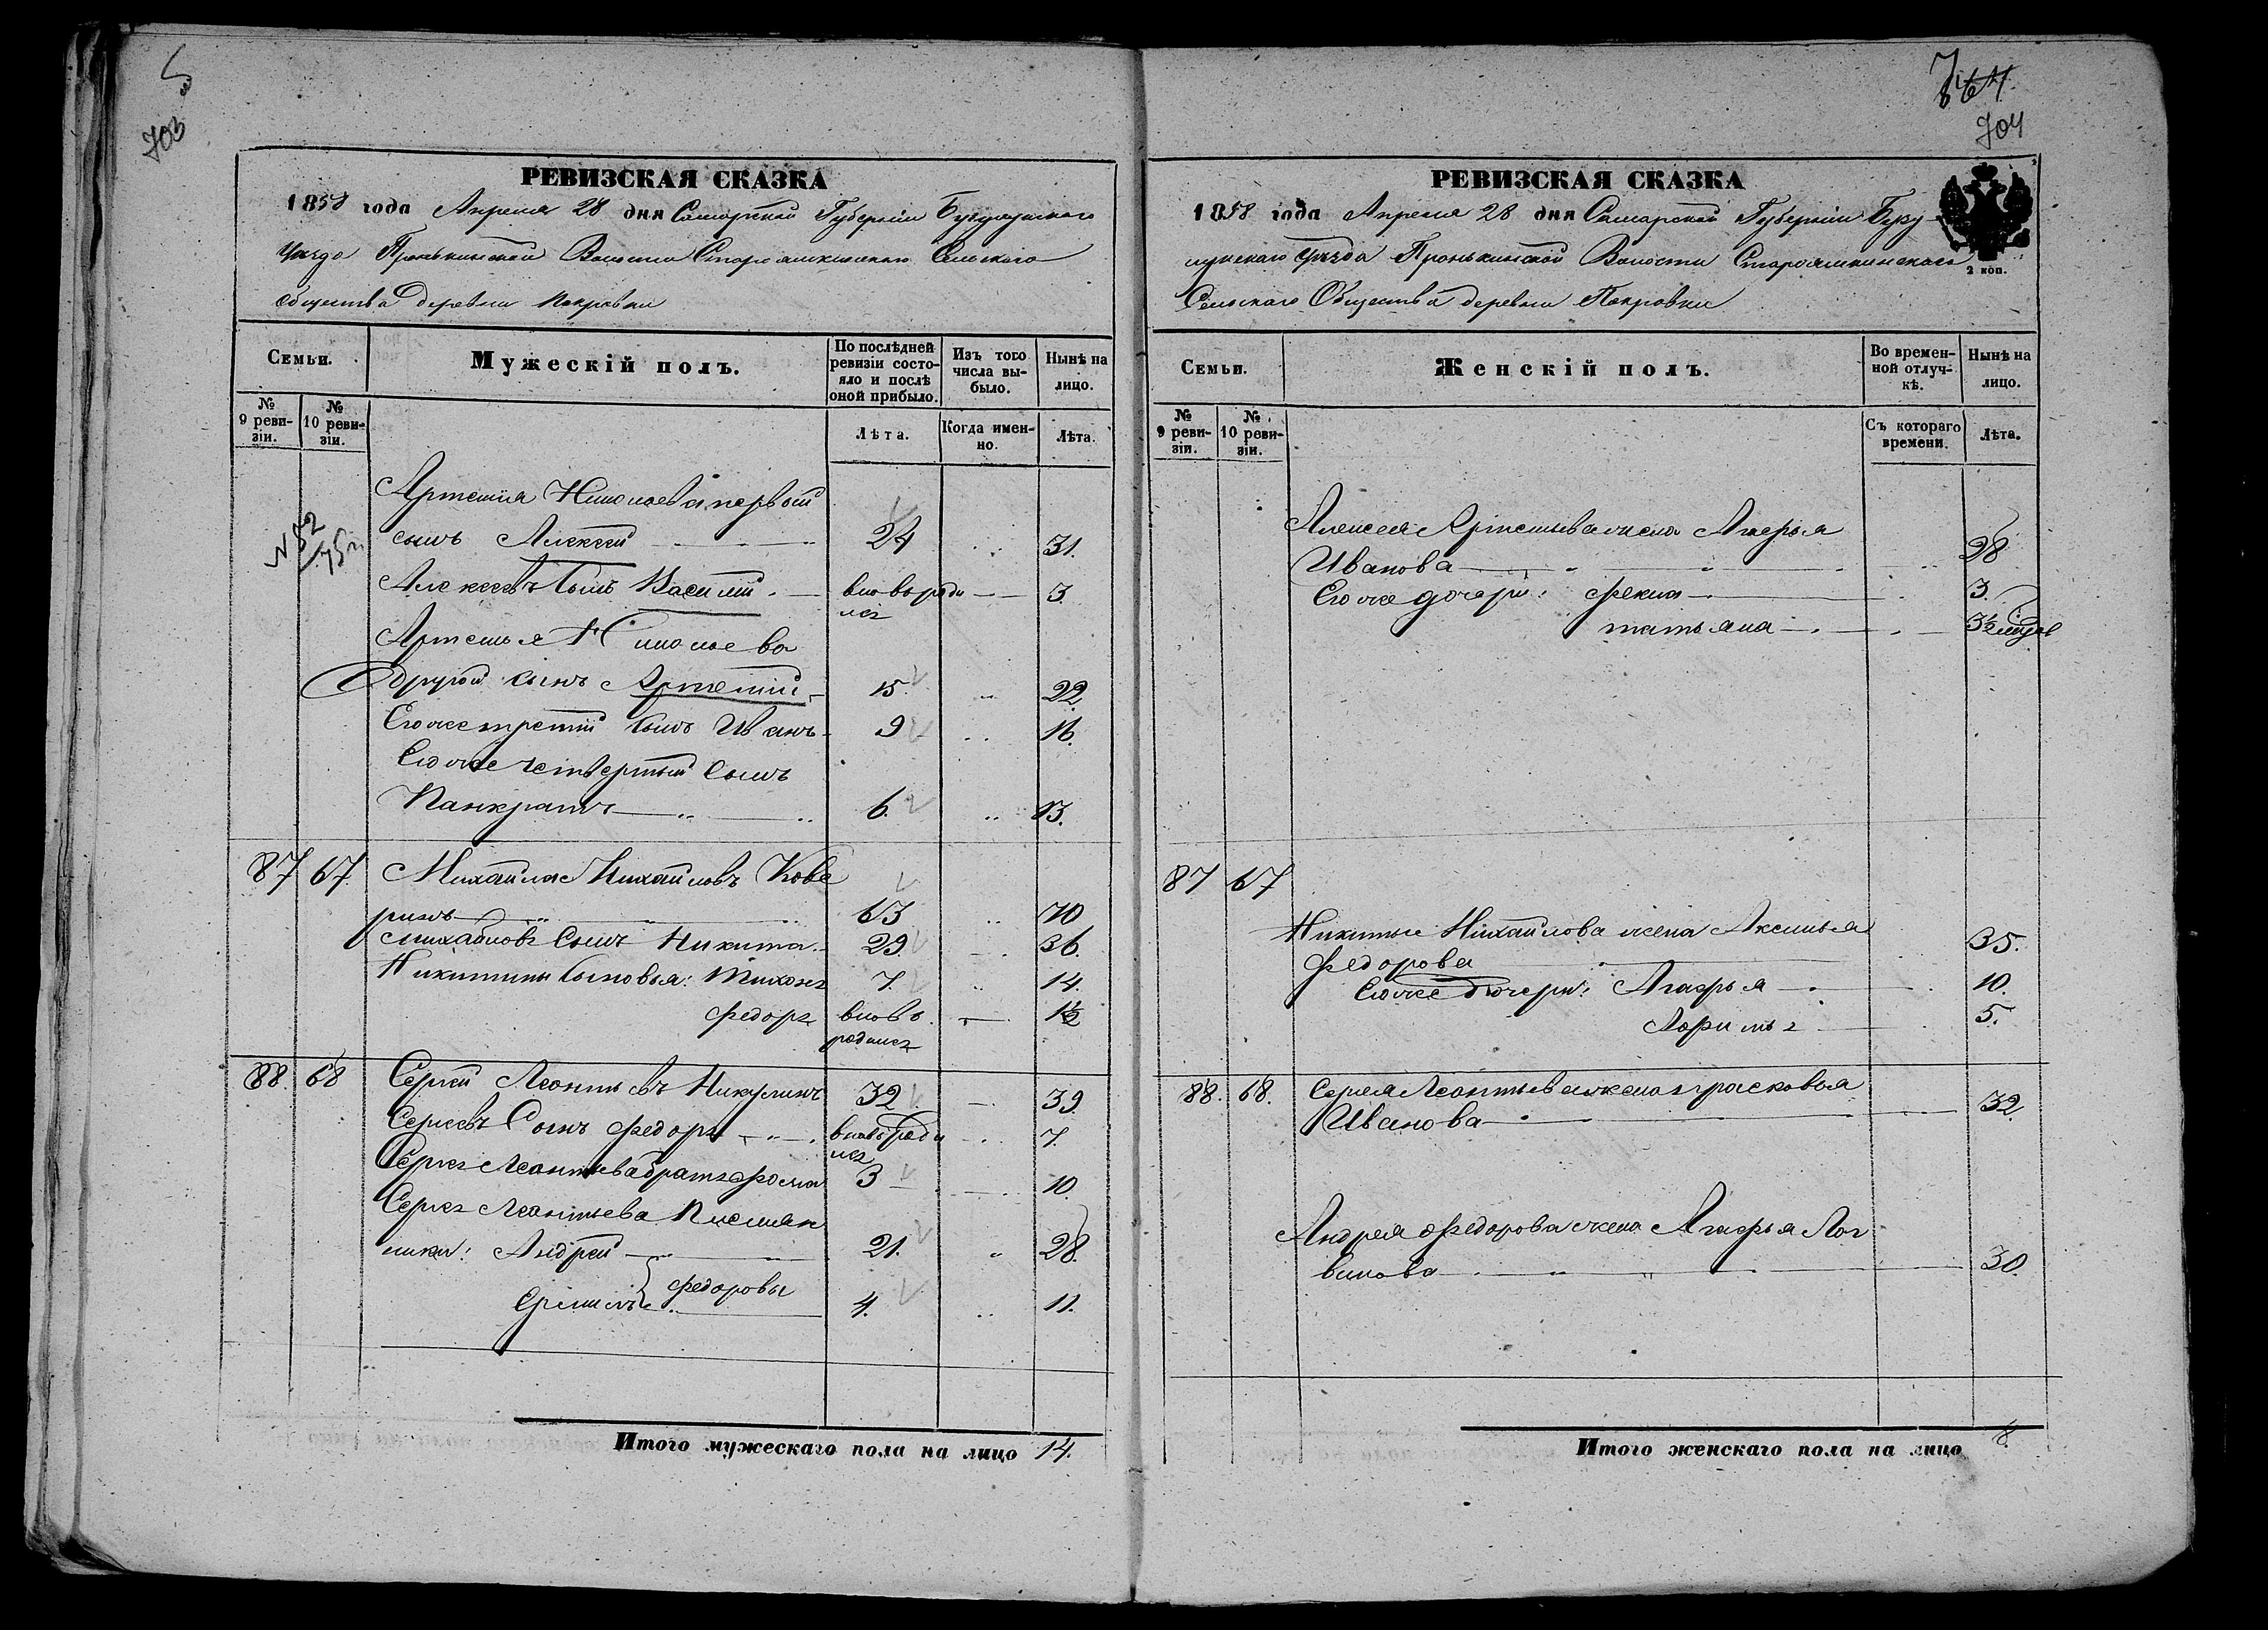 5
703
РЕВИЗСКАЯ СКАЗКА
1858 года Апреля 28 дня Самарской Губернiи Бугурусланского
Уезда Пронькинской Волости Староякшинскаго Сельского
Общества деревни Покровки
Семьи.
Мужескiй полъ.
По послѣдней ревизiи состояло и послѣ оной прибыло.
Изъ того числа выбыло.
Нынѣ на лицо.
№ 9 ревизiи.
№ 10 ревизiи.
Лѣта.
Когда именно.
Лѣта.
Артемiя Николаева первой
сынъ Алексей 24 31.
Алексеевъ сынъ Василiй вновь роди 3.
лсz
Артемья Николаева
другой сынъ Артемiй 15. 22.
Егоже третiй сынъ Иванъ 9 16.
Егоже четвертый сынъ
Панкратъ 6. 13.
87 67 Михайла Михайловъ Кове
ринъ 63 70
Михайловъ Сынъ Никита 29. 36.
Никитины сыновья: Тихонъ 7. 14.
Федоръ вновь 1½
родился
88. 68 Сергей Леонтьевъ Никулинъ 32 39.
Сергеевъ Сынъ Федоръ вновь роди 7.
лсz
Сергея Леонтьева братъ Фома 3 10.
Сергея Леонтьева Племян
ники: Андрей 21. 28.
Федоровы
Ермилъ 4. 11.
Итого мужескаго пола на лицо 14.
704
РЕВИЗСКАЯ СКАЗКА
1858 года Апреля 28 дня Самарской Губернiи Бугу-
русланского Уезда Пронькинской Волости
Сельскаго Общества деревни Покровки
2 коп.
Семьи.
Женскiй полъ.
Во временной отлучкѣ.
Нынѣ на лицо.
№ 9 ревизiи.
№ 10 ревизiи.
Съ котораго времени.
Лѣта.
Алексея Артемьева жена Агафья
Иванова 28
Егоже дочери: Фекла 3.
татьяна 3½
87 67
Никиты Михайлова жена Аксинья
Федорова 35.
Егоже дочери: Агафья 10.
5.
88. 68. Сергея Леонтьева жена прасковья
Иванова 32
Андрея Федорова жена Агафья Лог
винова 30.
Итого женскаго пола на лицо 8.